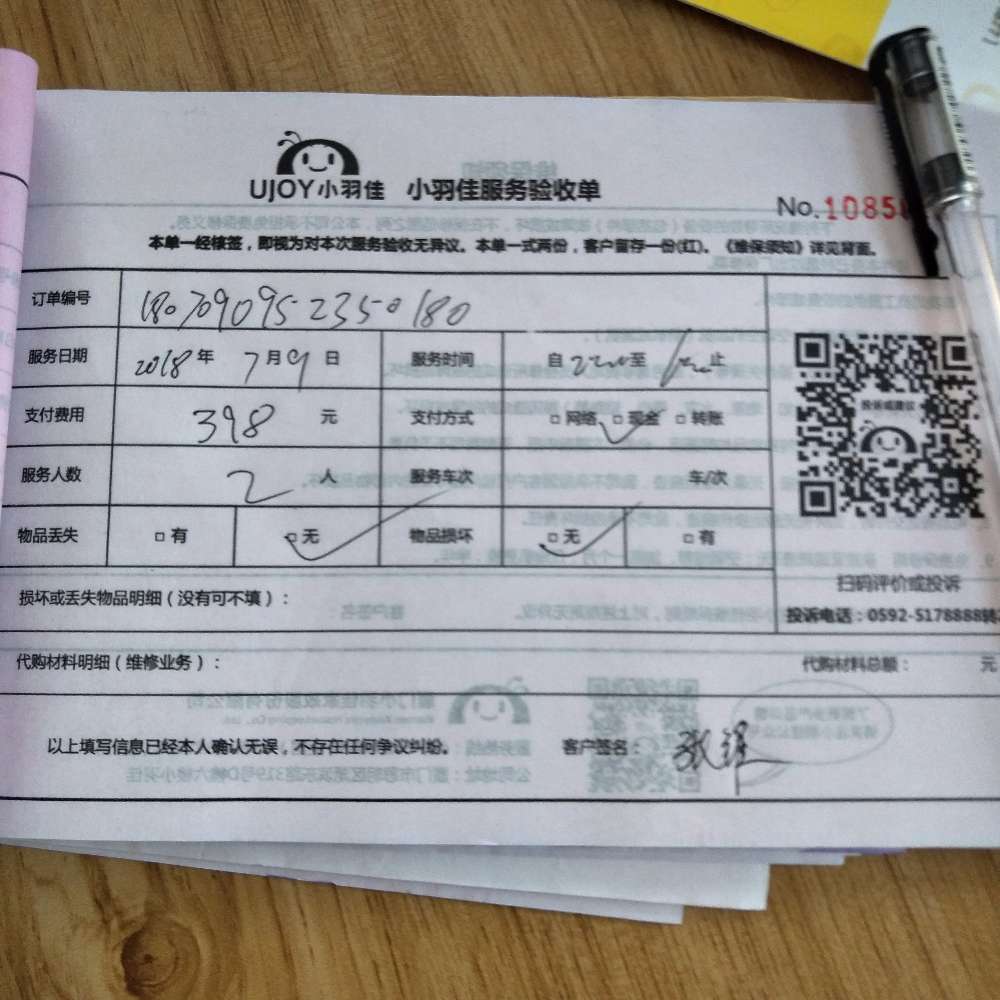 UJOY小羽佳 小羽佳服务验收单
No.1085
本单一经核签，即视为对本次服务验收无异议。本单一式两份，客户留存一份(红)。《维保须知》详见背面。
订单编号 1807090952350180
服务日期 2018年 7月9日 服务时间 自 至 止
支付费用 398 元 支付方式 □网络 □现金 □转账
服务人数 2 人 服务车次 车/次
物品丢失 □有 □无 物品损坏 □无 □有
投诉或建议
扫码评价或投诉
损坏或丢失物品明细（没有可不填）：
投诉电话：0592-5178888转
代购材料明细（维修业务）： 代购材料总额： 元
以上填写信息已经本人确认无误，不存在任何争议纠纷。 客户签名：